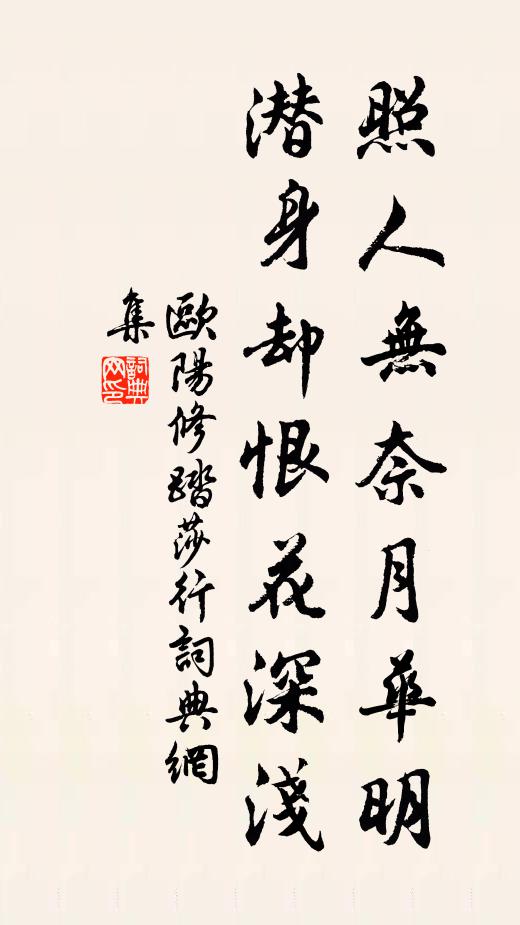 照人無奈月華明
潜身却恨花深淺
歐陽修踏莎行詞典網
集
詞典
网印